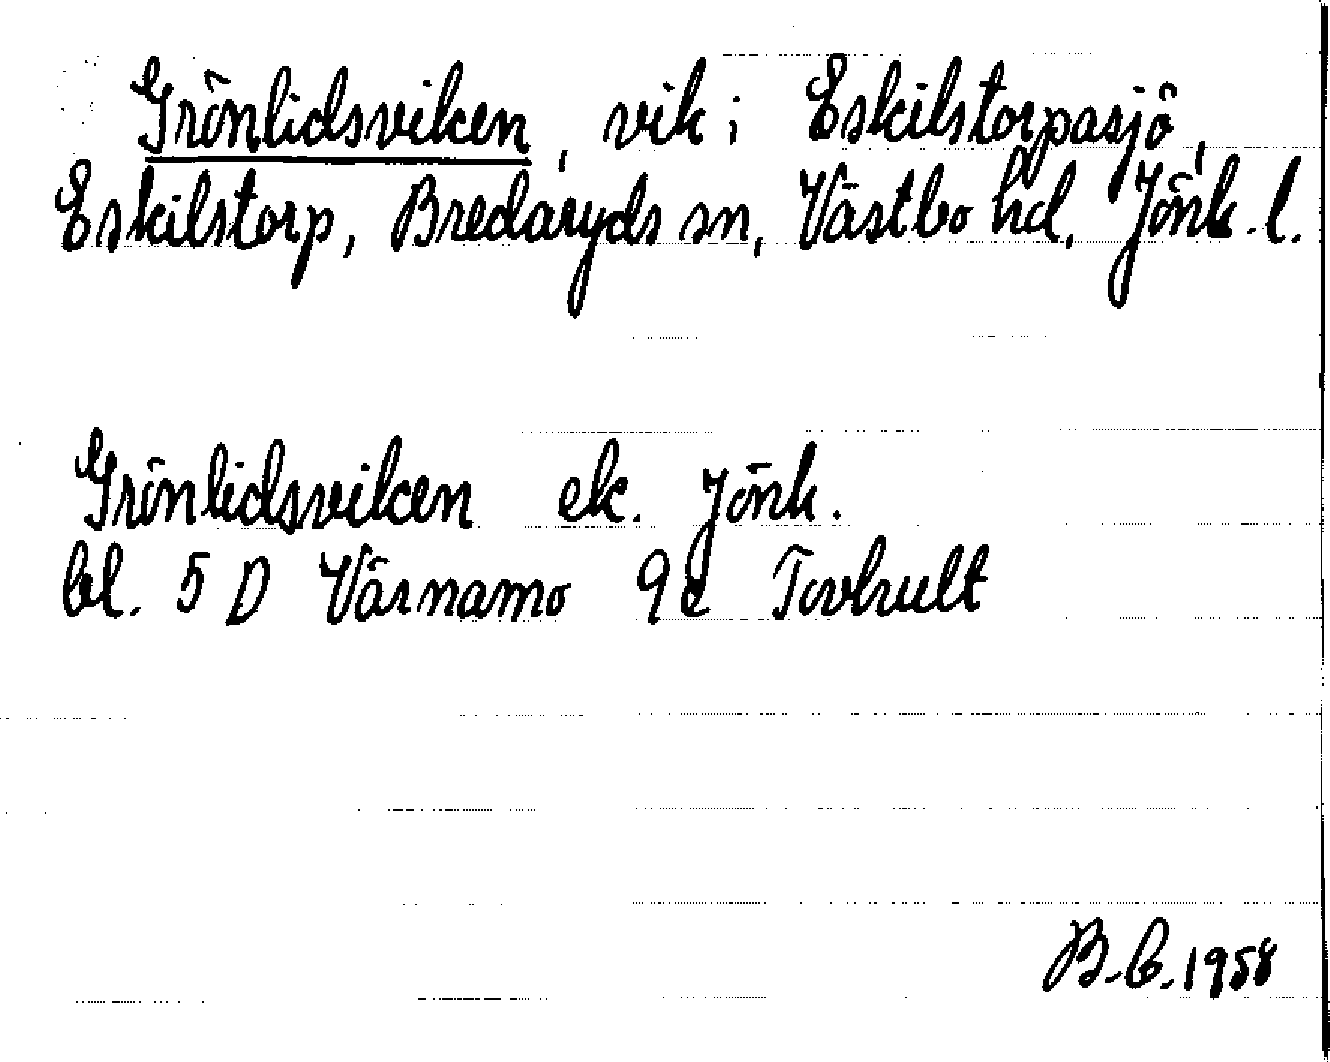 Grönlidsviken, vik i Eskilstorpasjö,
Eskilstorp, Bredaryds sn, Västbo hd, Jönk. l.
Grönlidsviken ek. Jönk.
bl. 5 D Värnamo 9c Tovhult
B.C. 1958